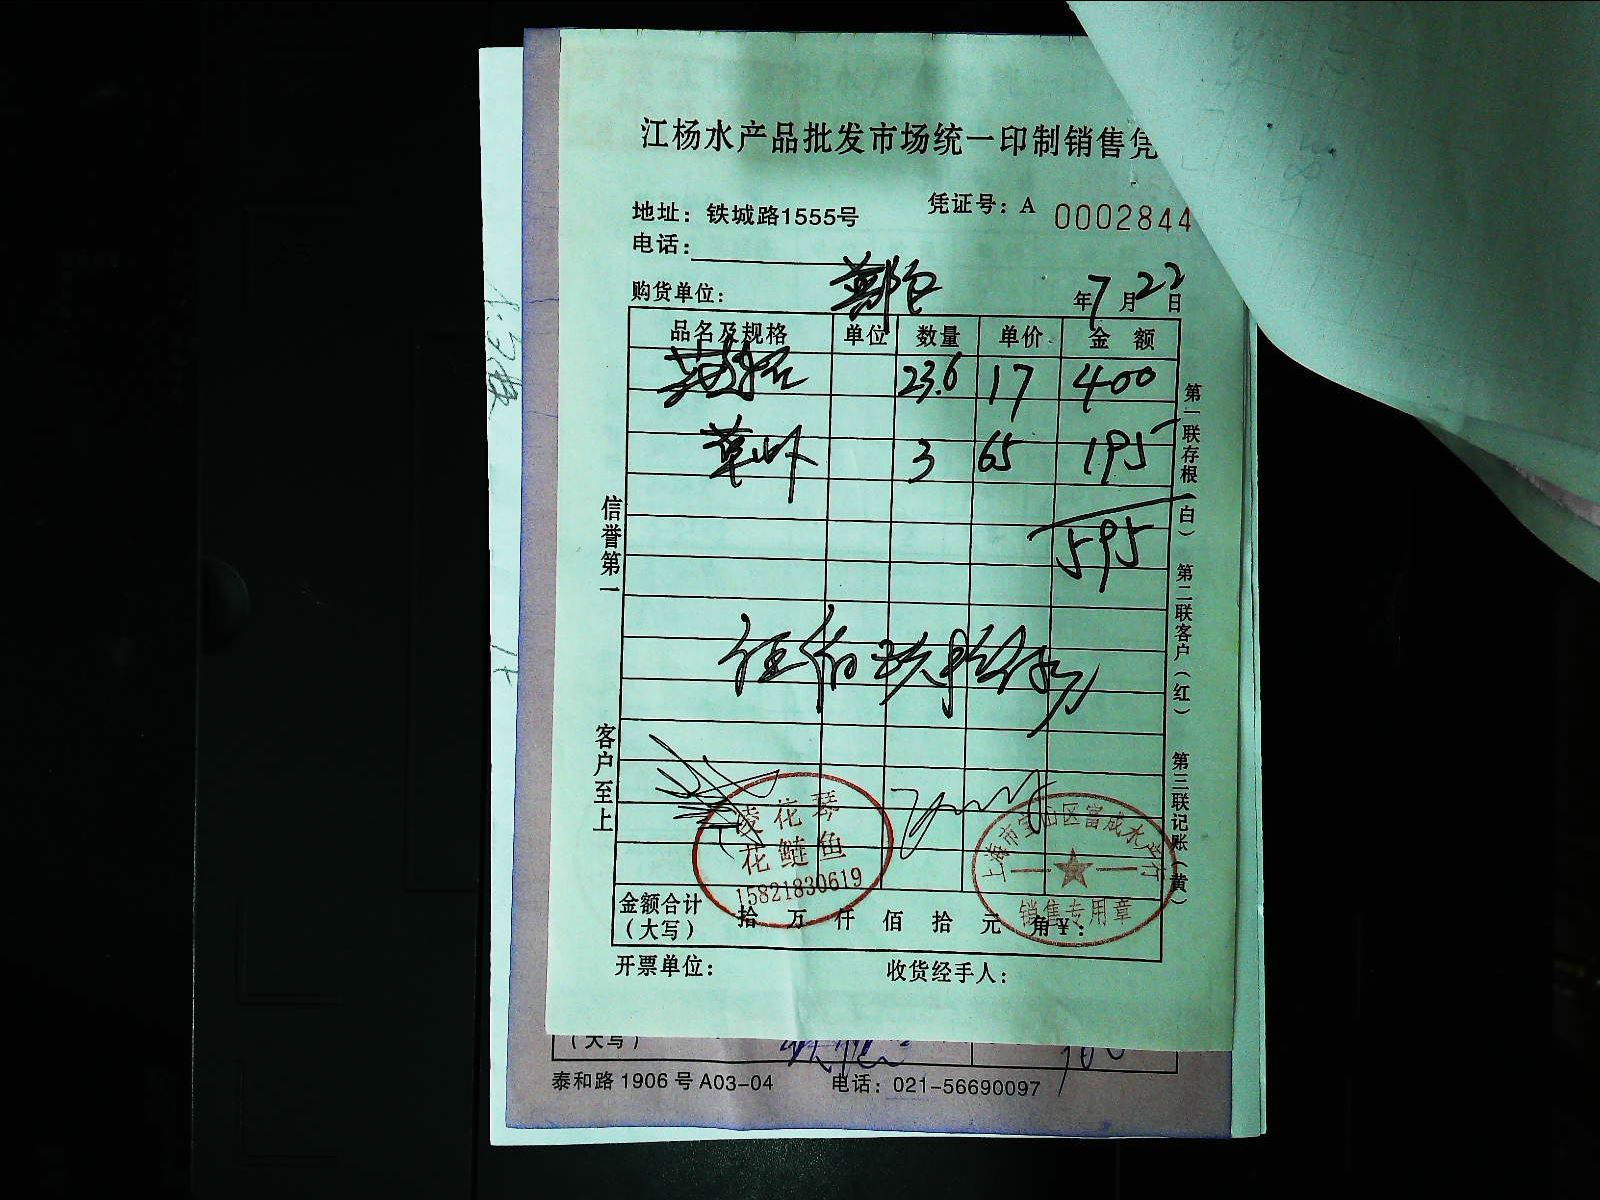 江杨水产品批发市场统一印制销售凭
地址：铁城路1555号
凭证号：A 0002844
电话：
购货单位：
年7月22日
品名及规格 单位 数量 单价 金额
23.6 17 400
草虾 3 65 195
595
伍佰玖拾伍
信誉第一
客户至上
第一联存根（白） 第二联客户（红） 第三联记账（黄）
凌花琴
花鲢鱼
15821830619
上海市宝山区富成水产行
销售专用章
金额合计
（大写）
拾 万 仟 佰 拾 元 角 ¥：
开票单位：
收货经手人：
（大写）
泰和路1906号A03-04 电话：021-56690097